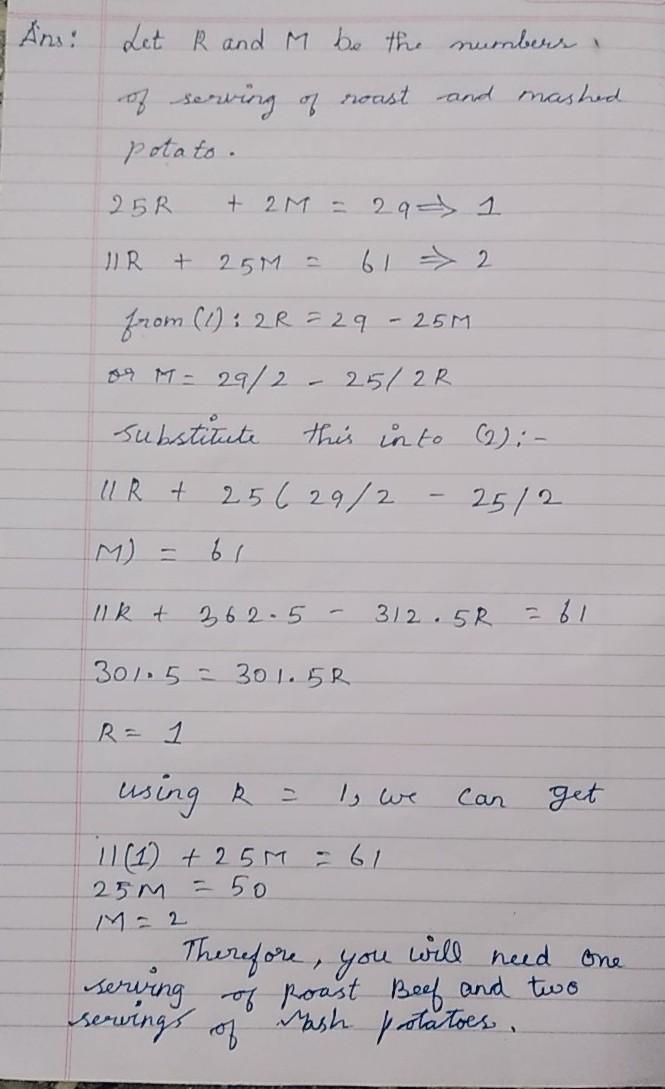 Ans: Let R and M be the numbers
of serving of roast and mashed
potato.
25R + 2M = 29 ⇒ 1
11R + 25M = 61 ⇒ 2
from (1): 2R = 29 - 25M
or M = 29/2 - 25/2R
substitute this into (2):-
11R + 25( 29/2 - 25/2
M) = 61
11R + 362.5 - 312.5R = 61
301.5 = 301.5R
R = 1
using R = 1, we can get
11(1) + 25M = 61
25M = 50
M = 2
Therefore, you will need one
serving of Roast Beef and two
servings of Mash potatoes.